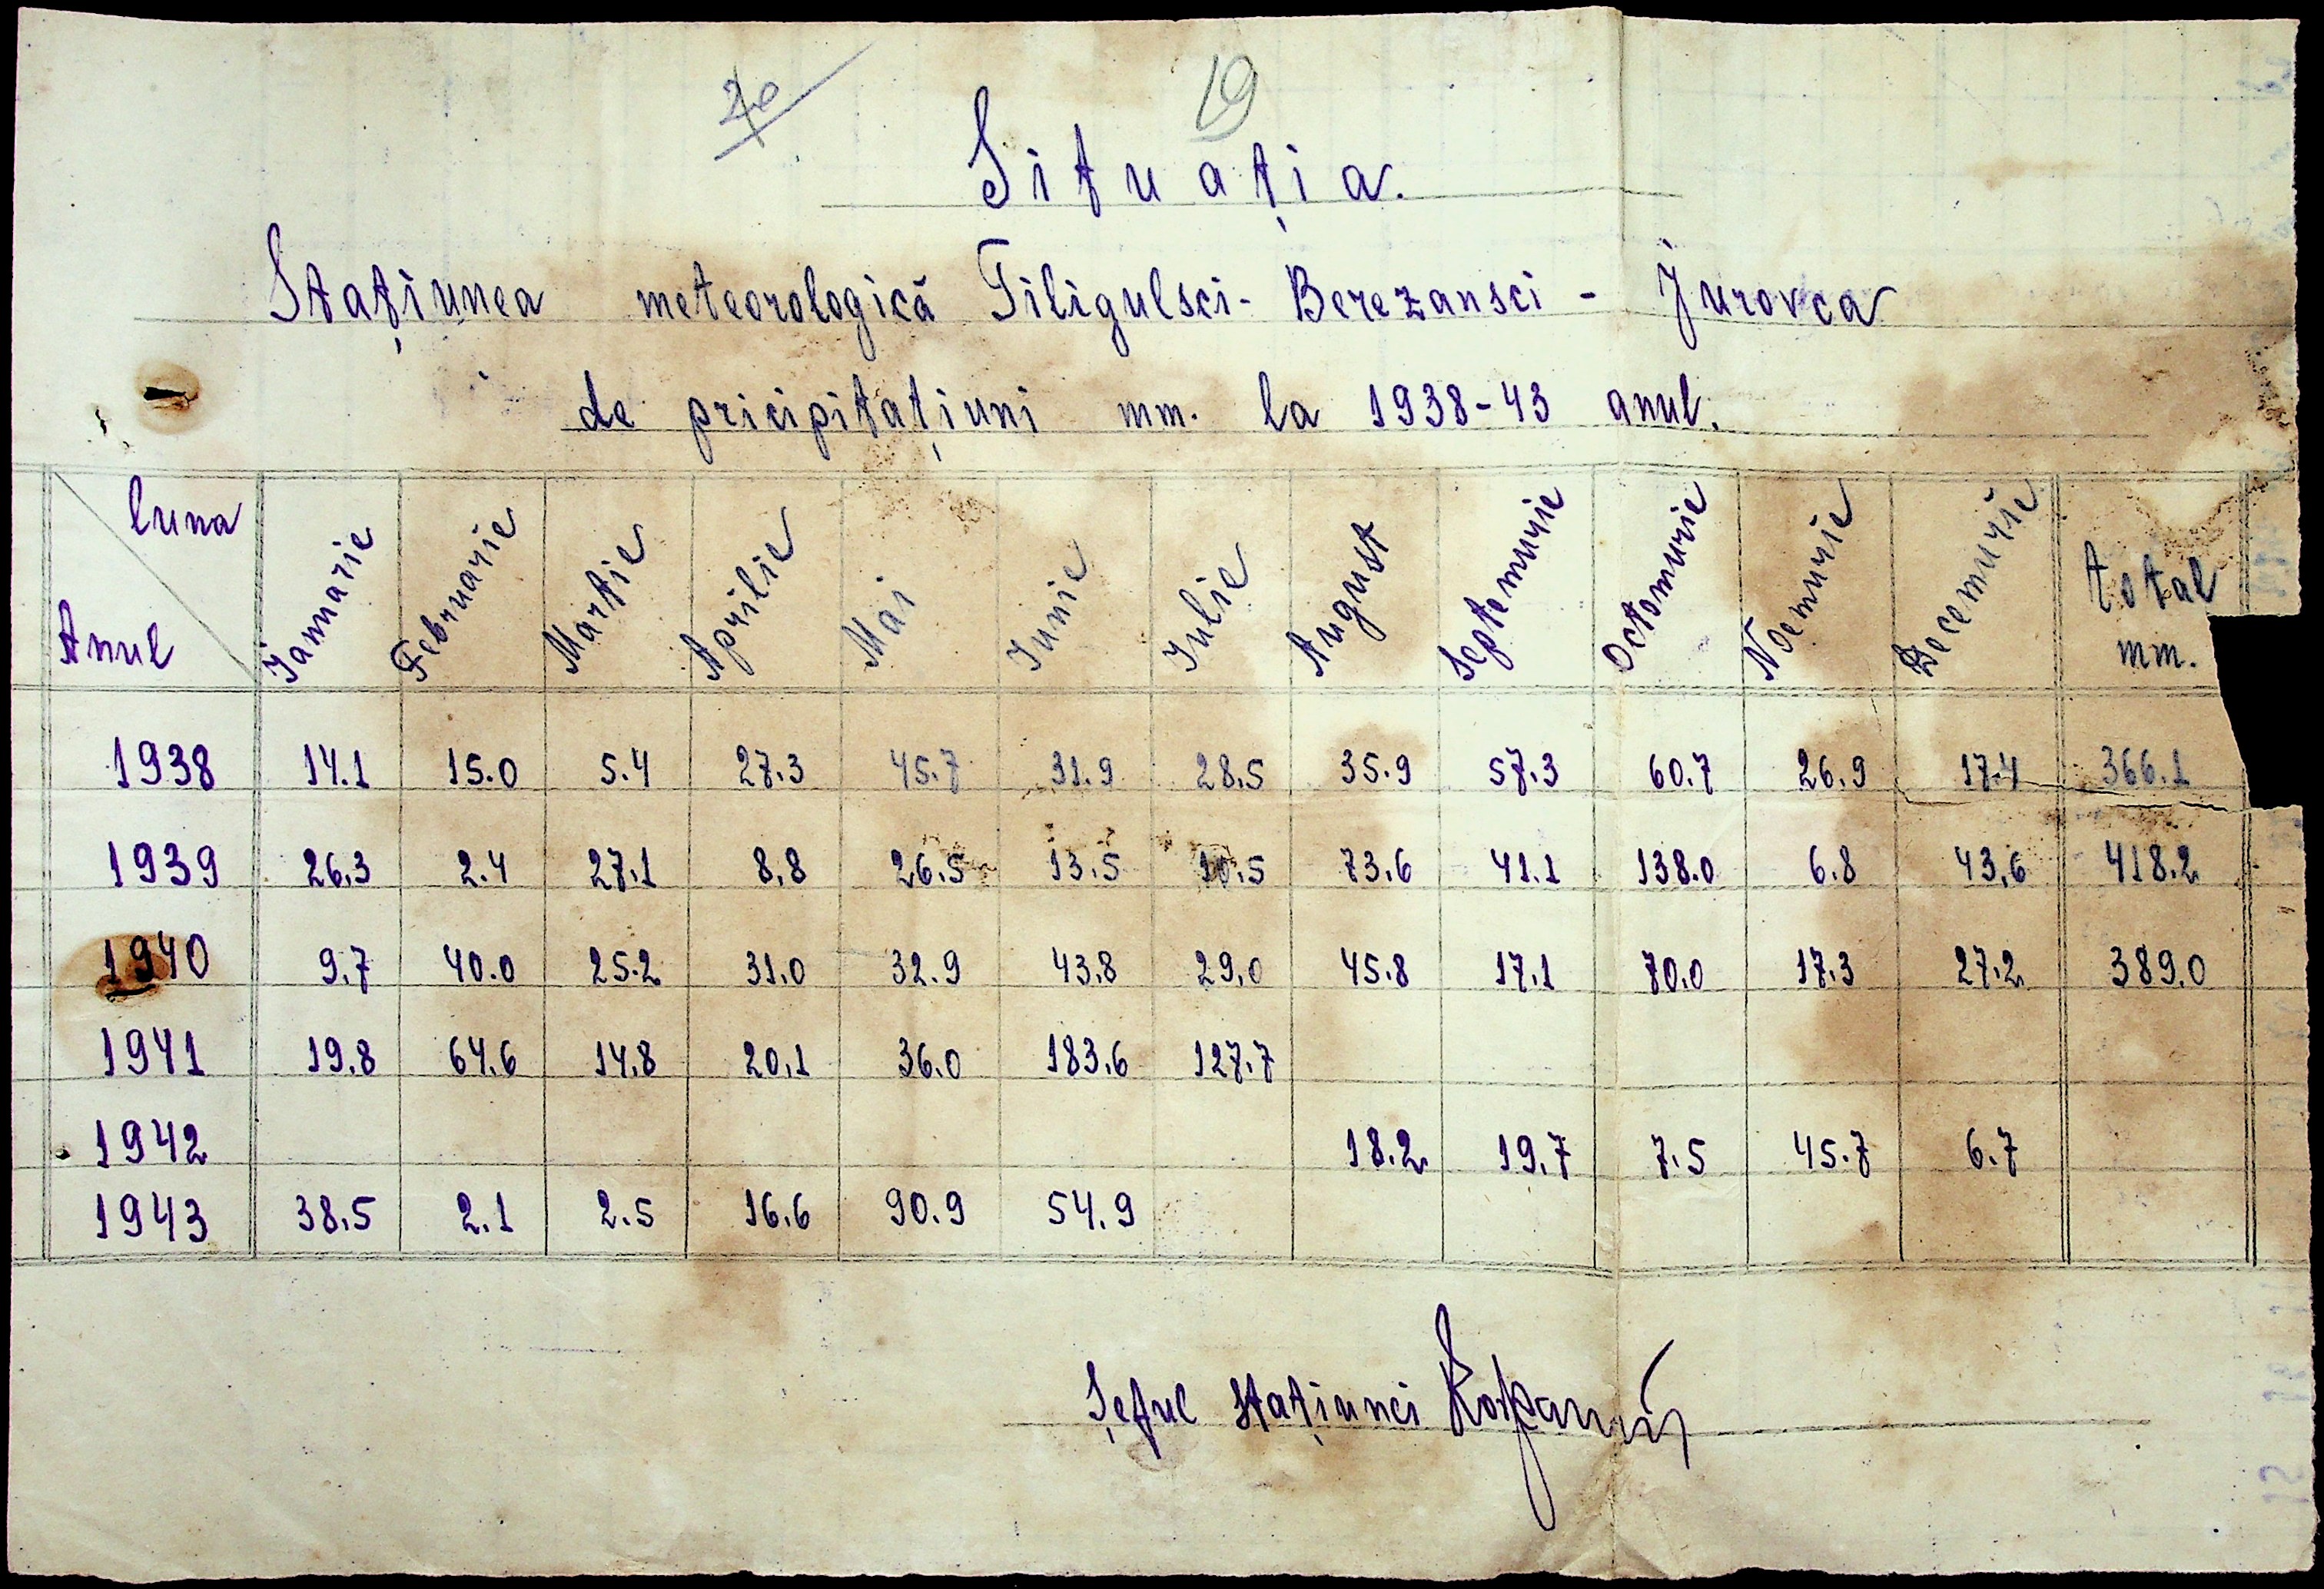 19
Situația.
Stațiunea meteorologică Tiligulsci - Berezansci - Jurovca
de pricipitațiuni mm. la 1938-43 anul.
luna Anul Januarie Februarie Martie Aprilie Mai Iunie Iulie August Septemvrie Octomvrie Noemvrie Decemvrie total mm.
1938 14.1 15.0 5.4 27.3 45.7 31.9 28.5 35.9 57.3 60.7 26.9 17.4 366.1
1939 26.3 2.4 27.1 8.8 26.5 13.5 10.5 73.6 41.1 138.0 6.8 43,6 418.2
1940 9.7 40.0 25.2 31.0 32.9 43.8 29.0 45.8 17.1 70.0 17.3 27.2 389.0
1941 19.8 64.6 14.8 20.1 36.0 183.6 127.7
1942 18.2 19.7 7.5 45.7 6.7
1943 38.5 2.1 2.5 16.6 90.9 54.9
Șeful stațiunei